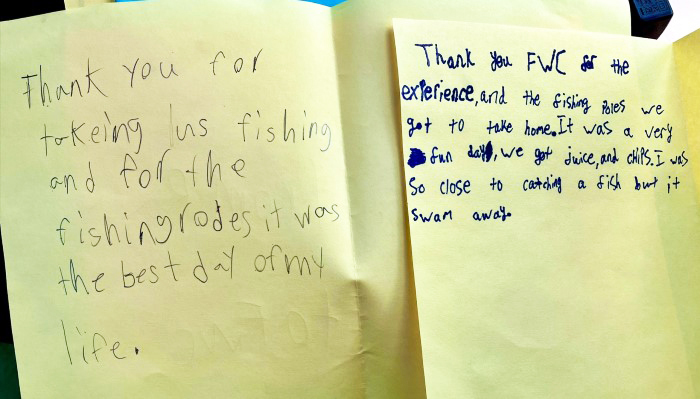 Thank you for
takeing us fishing
and for the
fishingrodes it was
the best day of my
life.
Thank you FWC for the
experience, and the fishing Poles we
got to take home. It was a very
fun day, we got juice, and chips. I was
So close to catching a fish but it
swam away.